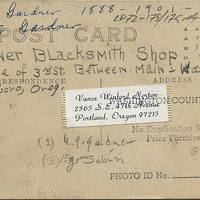 Gardner 1888-1901-
Gardner LP72-175/176-A
POST CARD
ner Blacksmith Shop
e of 3rd St. Between Main &
boro, Oreg.
CORRESPONDENCE ADDRESS
WASHINGTON COUN
Vance Winford Norton
2365 S.E. 47th Avenue
Portland, Oregon 97215
No Duplication
Prior Permis
(2) Gardner
(3) Sabin
PHOTO ID No.